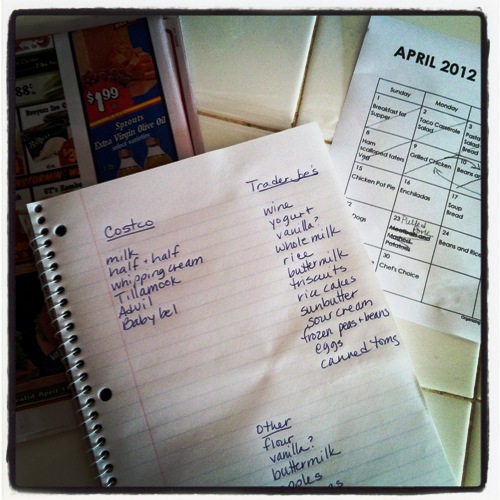 $1.99
Sprouts
Extra Virgin Olive Oil
select varieties
88¢
Costco
milk
half + half
whipping cream
Tillamook
Advil
Babybel
Trader Joe's
wine
yogurt
vanilla?
whole milk
rice
buttermilk
triscuits
rice cakes
sunbutter
sour cream
frozen peas + beans
eggs
canned toms
other
flour
vanilla?
buttermilk
APRIL 2012
Sunday
Monday
Breakfast for
Supper
2
Taco Casserole
Salad
3
Pasta
Salad
Bread
8
Ham
scalloped taters
Veg
9
Grilled Chicken
10
Beans
15
Chicken Pot Pie
16
Enchiladas
17
Soup
Bread
Dogs
23
Pulled
Pork
Meatloaf and
Mashed
Potatoes
24
Beans and Rice
30
Chef's Choice